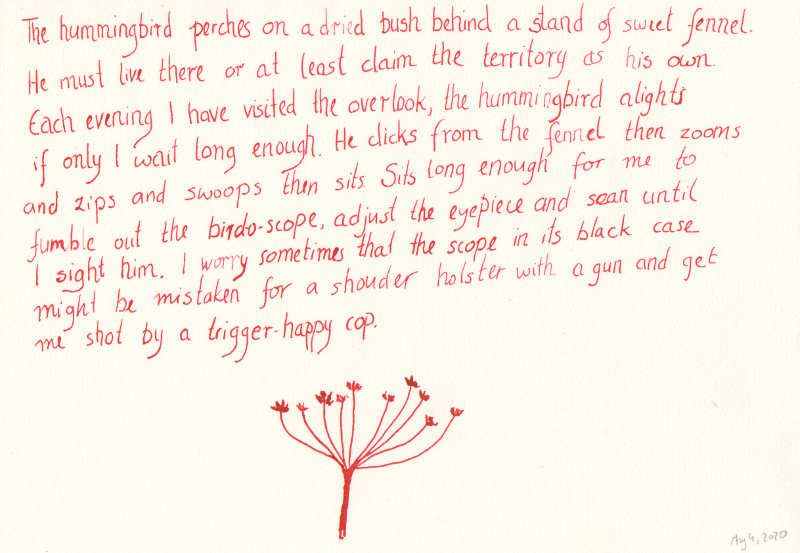 The hummingbird perches on a dried bush behind a stand of sweet fennel.
He must live there or at least claim the territory as his own.
Each evening I have visited the overlook, the hummingbird alights
if only I wait long enough. He clicks from the fennel then zooms
and zips and swoops then sits. Sits long enough for me to
fumble out the birdo-scope, adjust the eyepiece and scan until
I sight him. I worry sometimes that the scope in its black case
might be mistaken for a shouder holster with a gun and get
me shot by a trigger-happy cop.
Aug 4, 2020